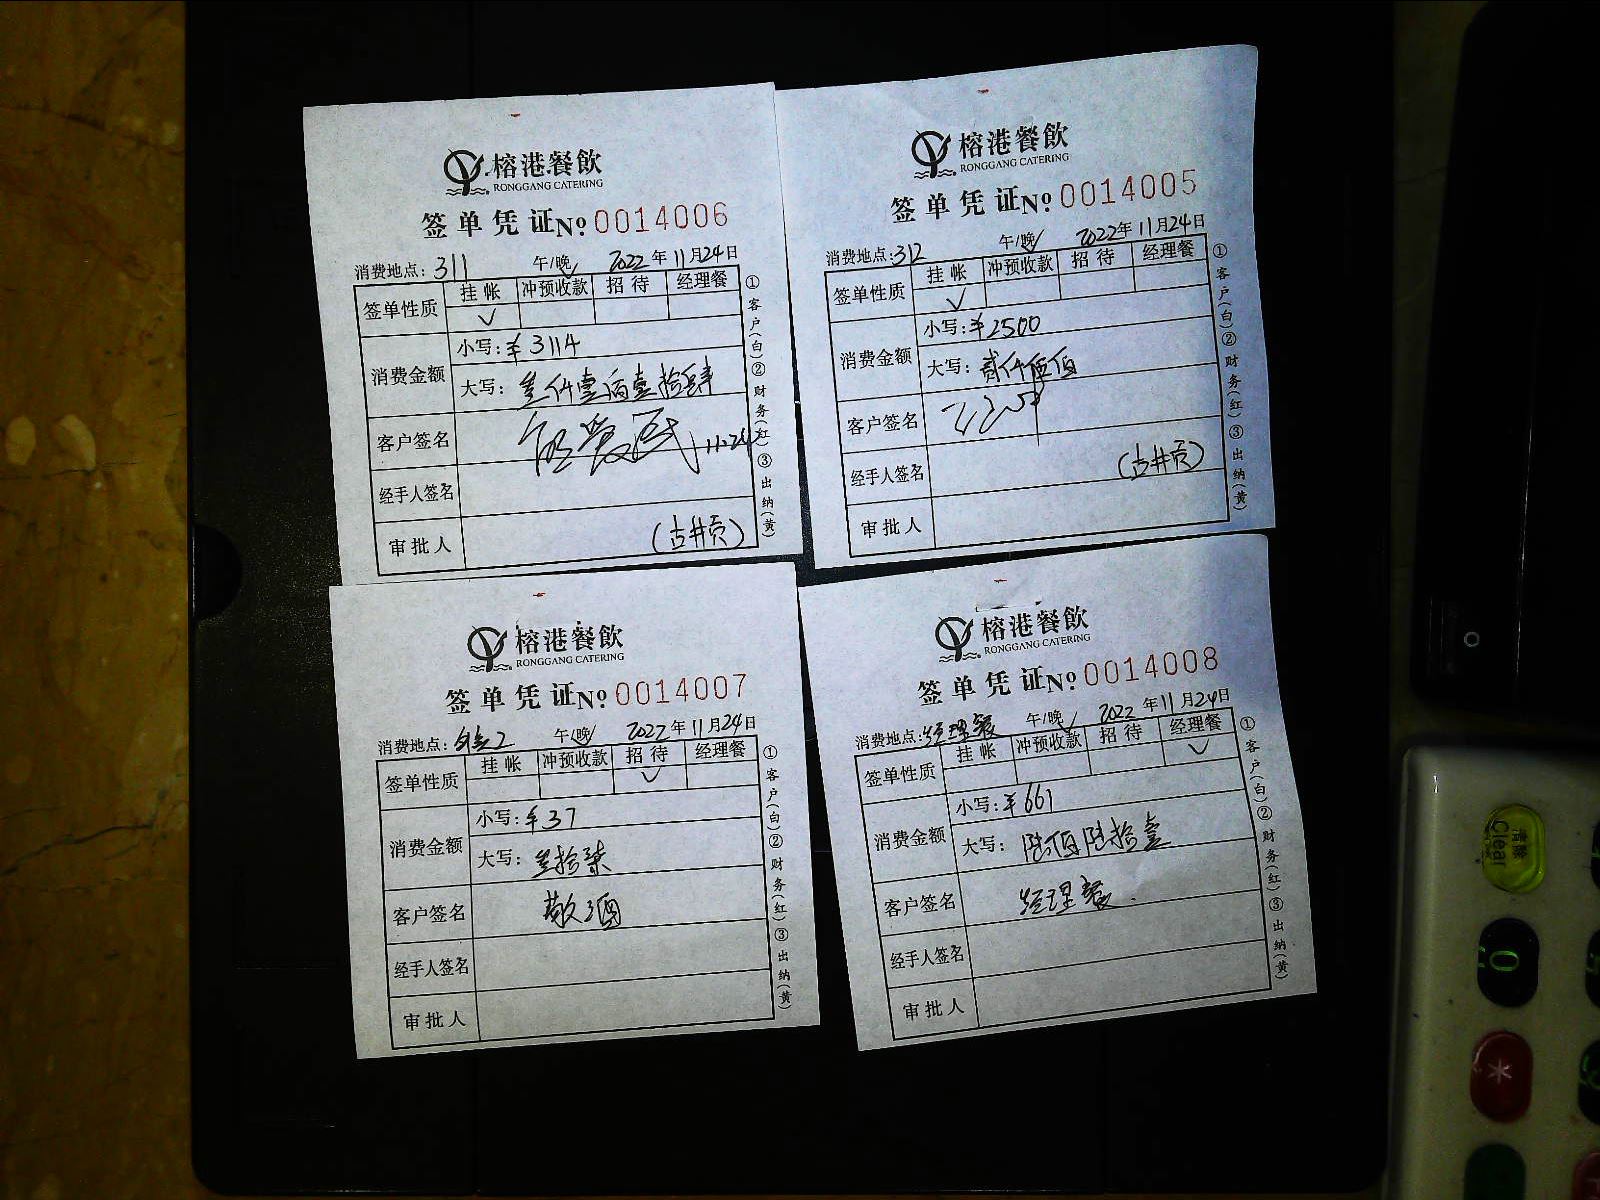 榕港餐飲
RONGGANG CATERING
签单凭证№ 0014006
消费地点: 311 午/晚✓ 2022年11月24日
签单性质 挂帐 冲预收款 招待 经理餐
✓
消费金额 小写: ¥3114
大写: 叁仟壹佰壹拾肆
客户签名 11.24
经手人签名
审批人 (古井贡)
①客户(白)②财务(红)③出纳(黄)
榕港餐飲
RONGGANG CATERING
签单凭证№ 0014005
消费地点: 312 午/晚✓ 2022年11月24日
签单性质 挂帐 冲预收款 招待 经理餐
✓
消费金额 小写: ¥2500
大写: 贰仟伍佰
客户签名
经手人签名 (古井贡)
审批人
①客户(白)②财务(红)③出纳(黄)
榕港餐飲
RONGGANG CATERING
签单凭证№ 0014007
消费地点: 2 午/晚✓ 2022年11月24日
签单性质 挂帐 冲预收款 招待 经理餐
✓
消费金额 小写: ¥37
大写: 叁拾柒
客户签名 敬酒
经手人签名
审批人
①客户(白)②财务(红)③出纳(黄)
榕港餐飲
RONGGANG CATERING
签单凭证№ 0014008
消费地点: 经理餐 午/晚✓ 2022年11月24日
签单性质 挂帐 冲预收款 招待 经理餐
✓
消费金额 小写: ¥661
大写: 陆佰陆拾壹
客户签名 经理餐
经手人签名
审批人
①客户(白)②财务(红)③出纳(黄)
清除
Clear
0
*